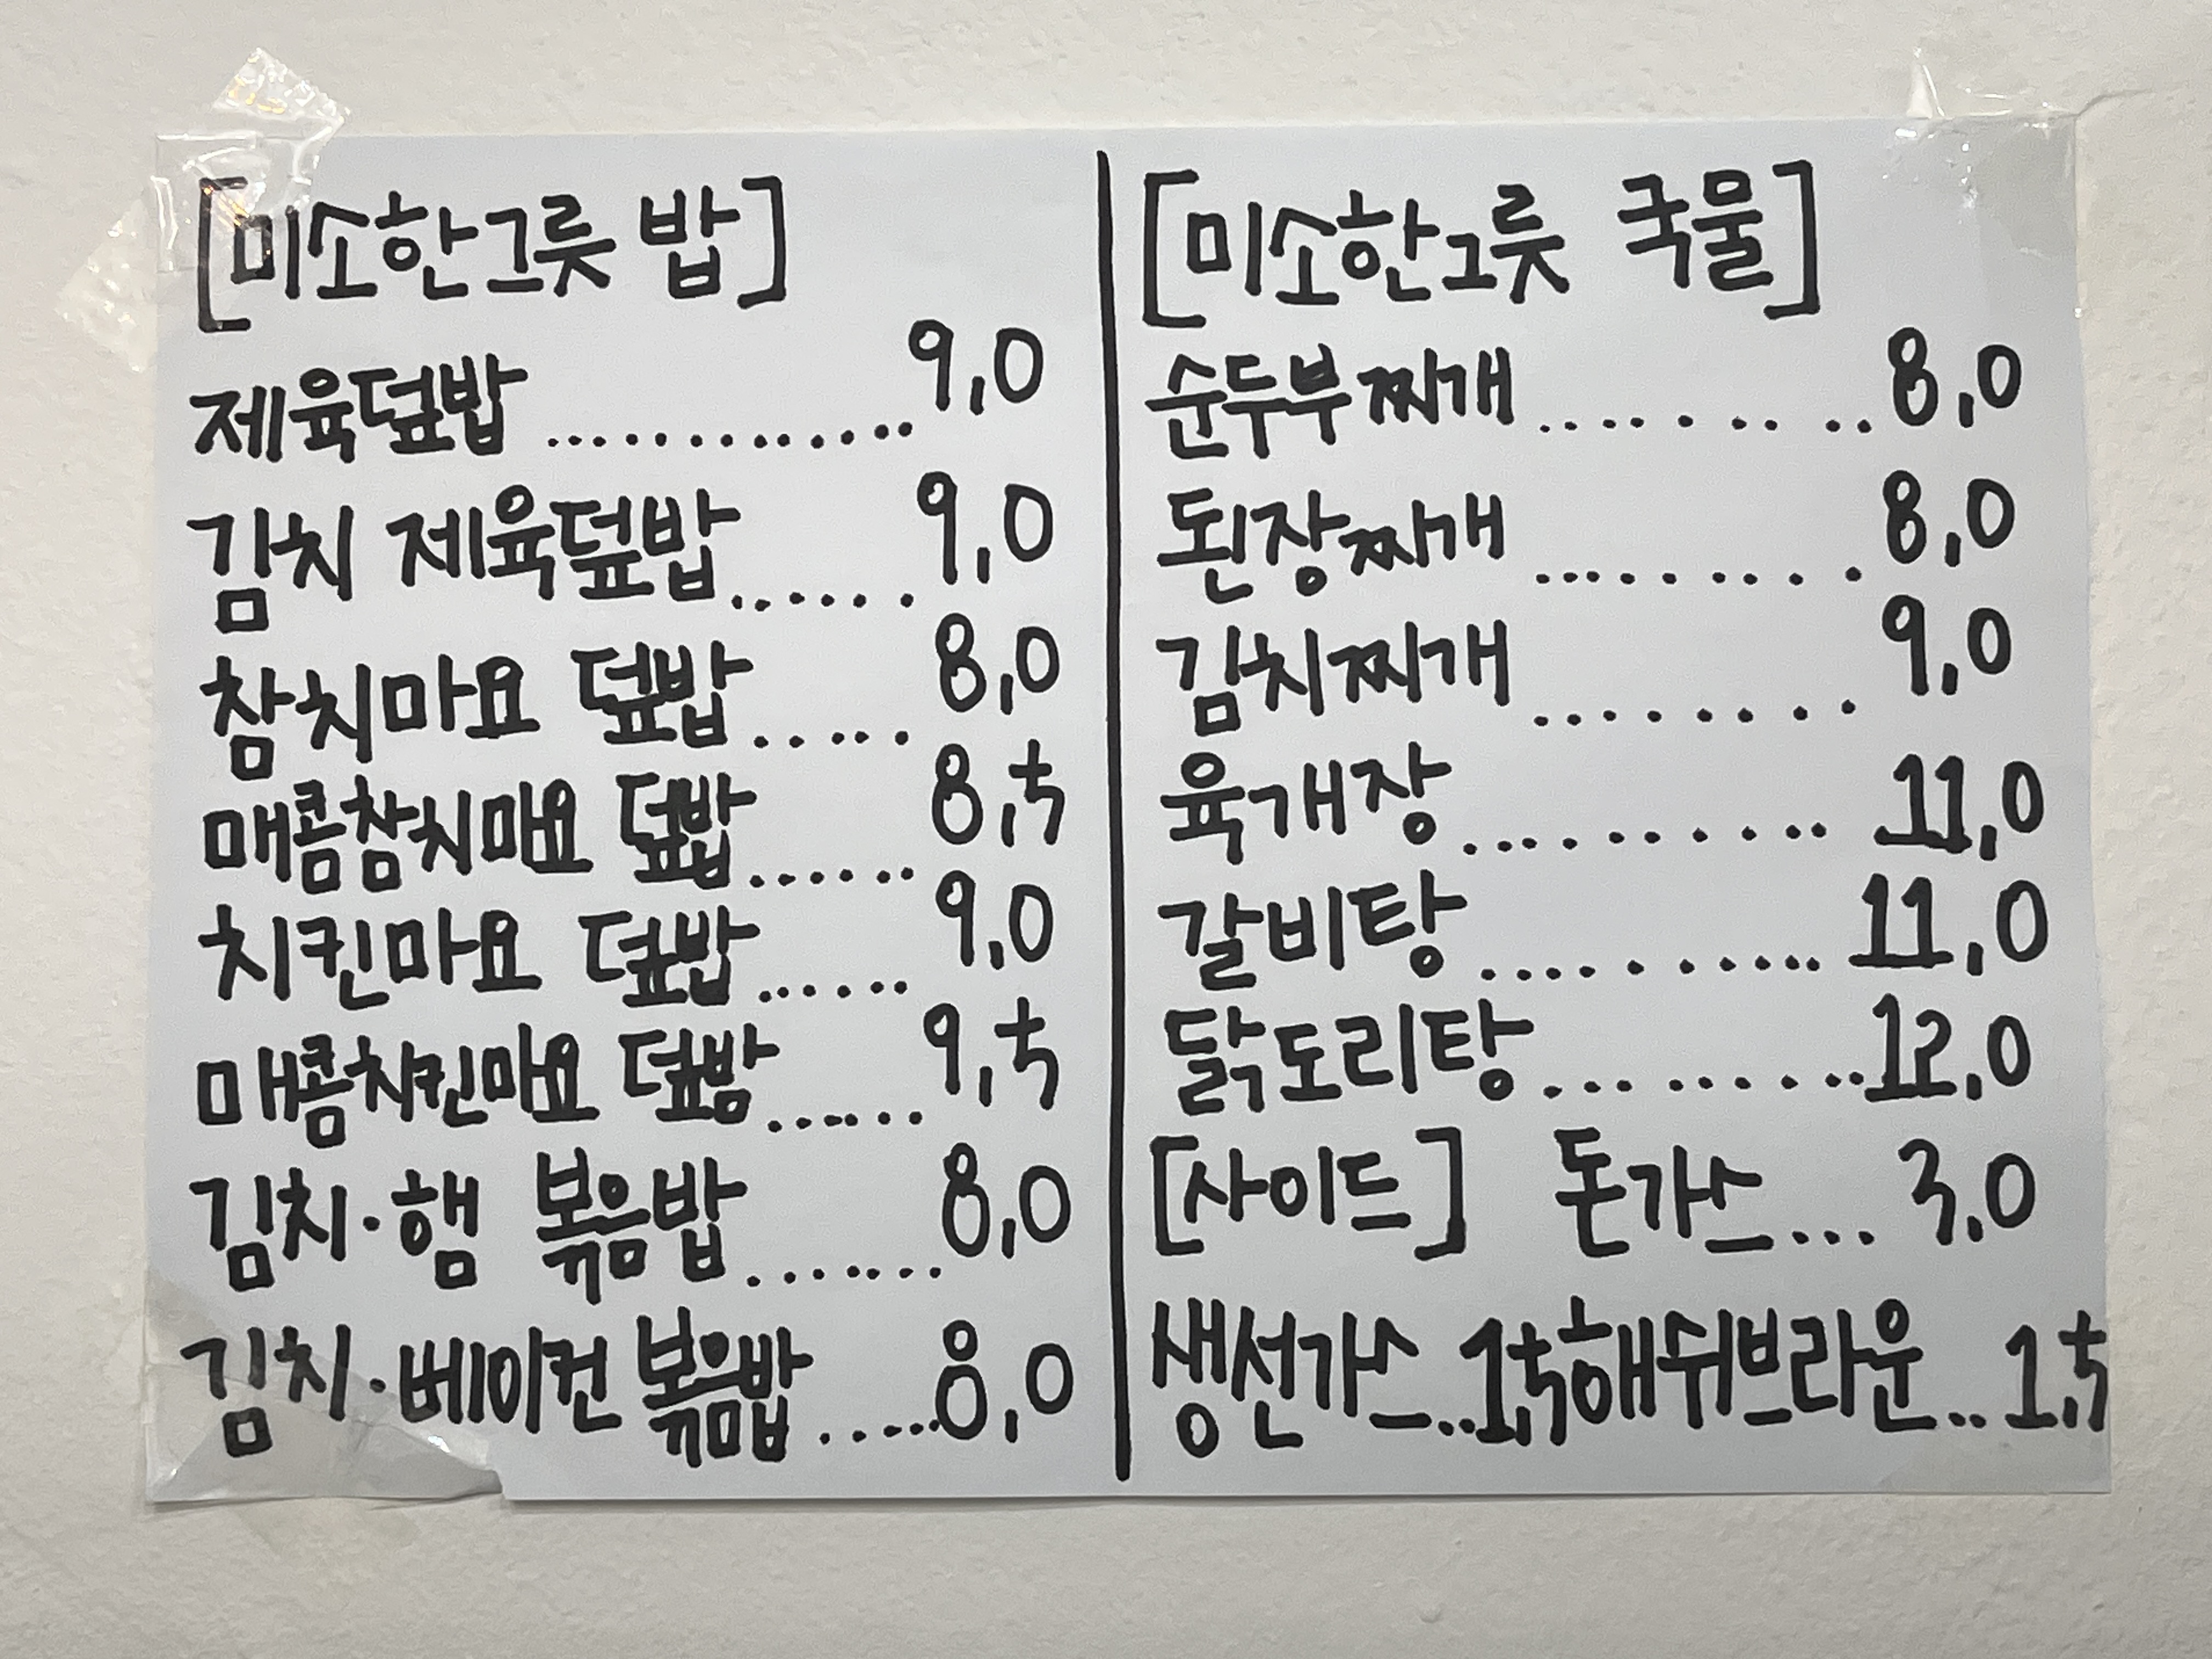 [미소한그릇 밥]
제육덮밥 ............. 9,0
김치 제육덮밥 ...... 9,0
참치마요 덮밥 ..... 8,0
매콤참치마요 덮밥 ...... 8,5
치킨마요 덮밥 ...... 9,0
매콤치킨마요 덮밥 ...... 9,5
김치·햄 볶음밥 ....... 8,0
김치·베이컨 볶음밥 ..... 8,0
[미소한그릇 국물]
순두부찌개 ......... 8,0
된장찌개 ........ 8,0
김치찌개 ........ 9,0
육개장 .......... 11,0
갈비탕 .......... 11,0
닭도리탕 ......... 12,0
[사이드] 돈가스 ... 3,0
생선가스 .. 1,5 해쉬브라운 .. 1,5